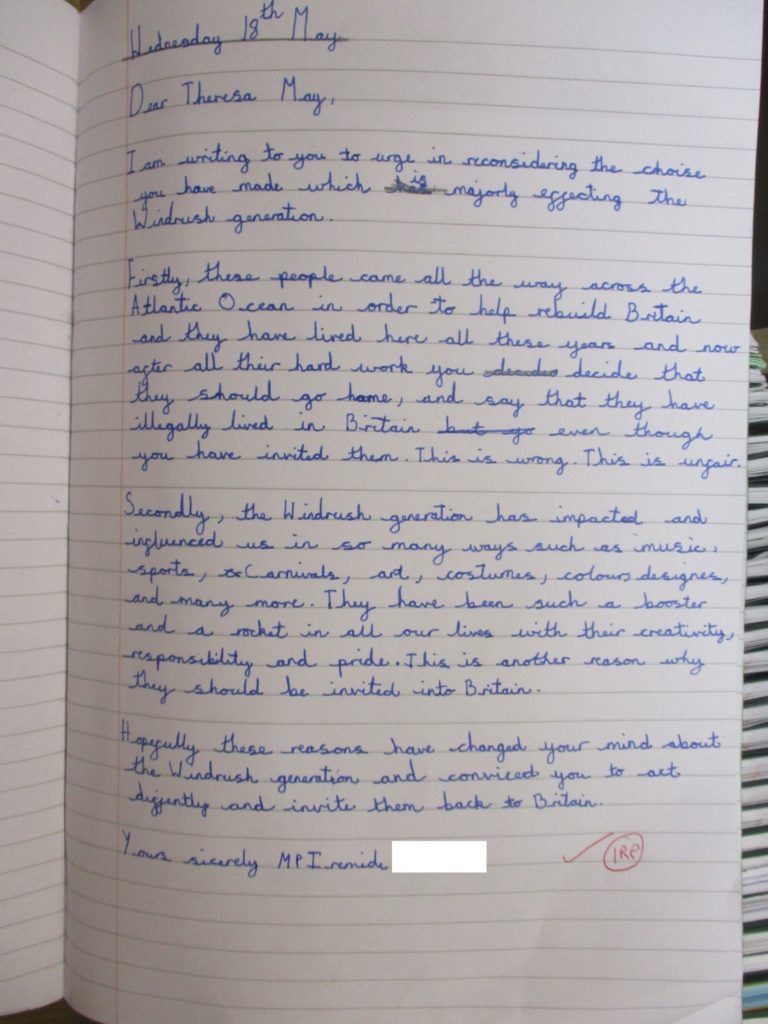 Wednesday 18th May
Dear Theresa May,
I am writing to you to urge in reconsidering the choise
you have made which is majorly effecting the
Windrush generation.
Firstly, these people came all the way across the
Atlantic Ocean in order to help rebuild Britain
and they have lived here all these years and now
after all their hard work you decide that
they should go home, and say that they have
illegally lived in Britain but go even though
you have invited them. This is wrong. This is unfair.
Secondly, the Windrush generation has impacted and
influenced us in so many ways such as music,
sports, Carnivals, art, costumes, colours designes,
and many more. They have been such a booster
and a rocket in all our lives with their creativity,
responsibility and pride. This is another reason why
they should be invited into Britain.
Hopefully these reasons have changed your mind about
the Windrush generation and conviced you to act
diffently and invite them back to Britain.
Yours sicerely MP I remide
IRP